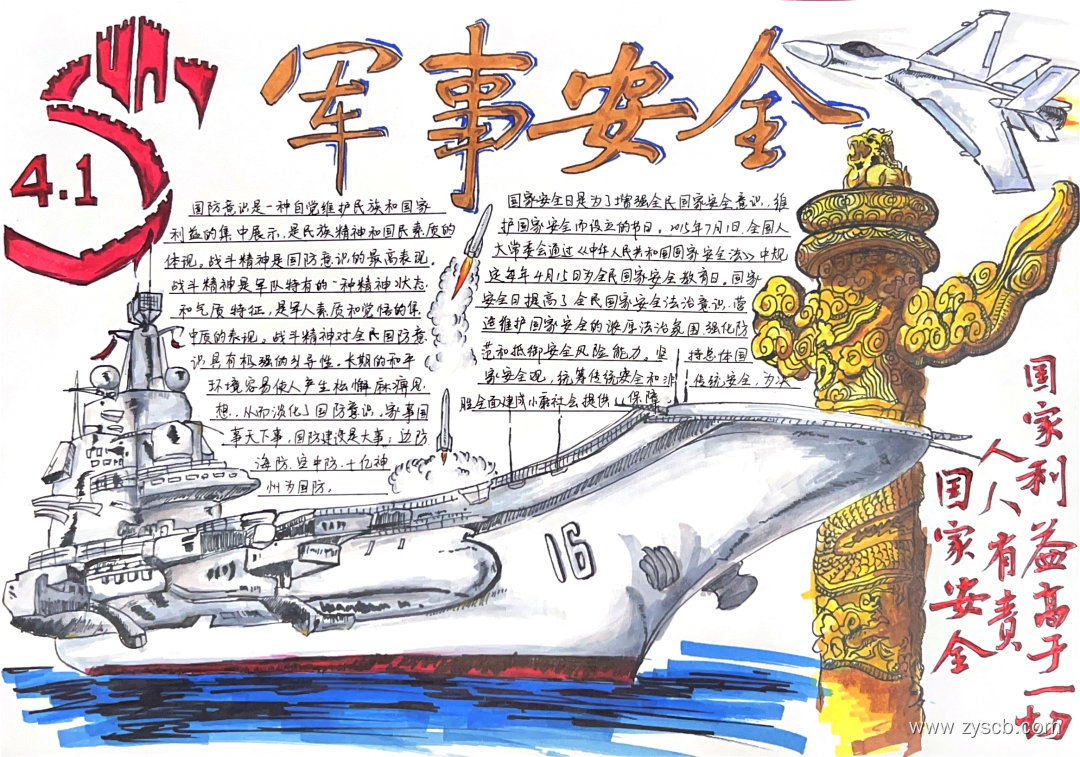 军事安全
4.15
国防意识是一种自觉维护民族和国家
利益的集中展示,是民族精神和国民素质的
体现。战斗精神是国防意识的最高表现。
战斗精神是军队特有的一种精神状态
和气质特征,是军人素质和觉悟的集
中质的表现。战斗精神对全民国防意
识具有极强的引导性。长期的和平
环境容易使人产生松懈麻痹思
想,从而淡化了国防意识。家事国
事天下事,国防建设是大事;边防
海防、空中防,十亿神
州为国防。
国家安全日是为了增强全民国家安全意识,维
护国家安全而设立的节日。2015年7月1日,全国人
大常委会通过《中华人民共和国国家安全法》中规
定每年4月15日为全民国家安全教育日。国家
安全日提高了全民国家安全法治意识,营
造维护国家安全的浓厚法治氛围 强化防
范和抵御安全风险能力。坚 持总体国
家安全观,统筹传统安全和非 传统安全,为决
胜全面建成小康社会提供 保障
16
国家利益高于一切
国家安全
人人有责
www.zyscb.com